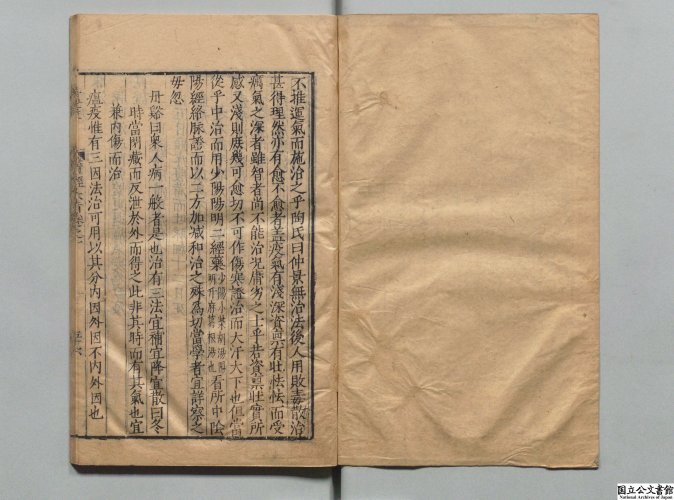 不推運氣而施治之乎陶氏曰仲景無治法後人用敗毒散治
甚得理然亦有愈不愈者蓋疫氣有淺深資稟有壯怯怯而受
癘氣之深者雖智者尚不能治况庸劣之士乎若資稟壯實所
感又淺則庶幾可愈切不可作傷寒證治而大汗大下也但當
從乎中治而用少陽陽明二經藥少陽小柴胡湯陽明升麻葛根湯也看所中陰
陽經絡脉證而以二方加減和治之殊為切當學者宜詳察之
毋忽
丹谿曰衆人病一般者是也治有三法宜補宜降宜散曰冬
時當閉藏而反泄於外而得之此非其時而有其氣也宜
兼內傷而治
瘟疫惟有三因法治可用以其分內因外因不內外因也
国立公文書館
National Archives of Japan